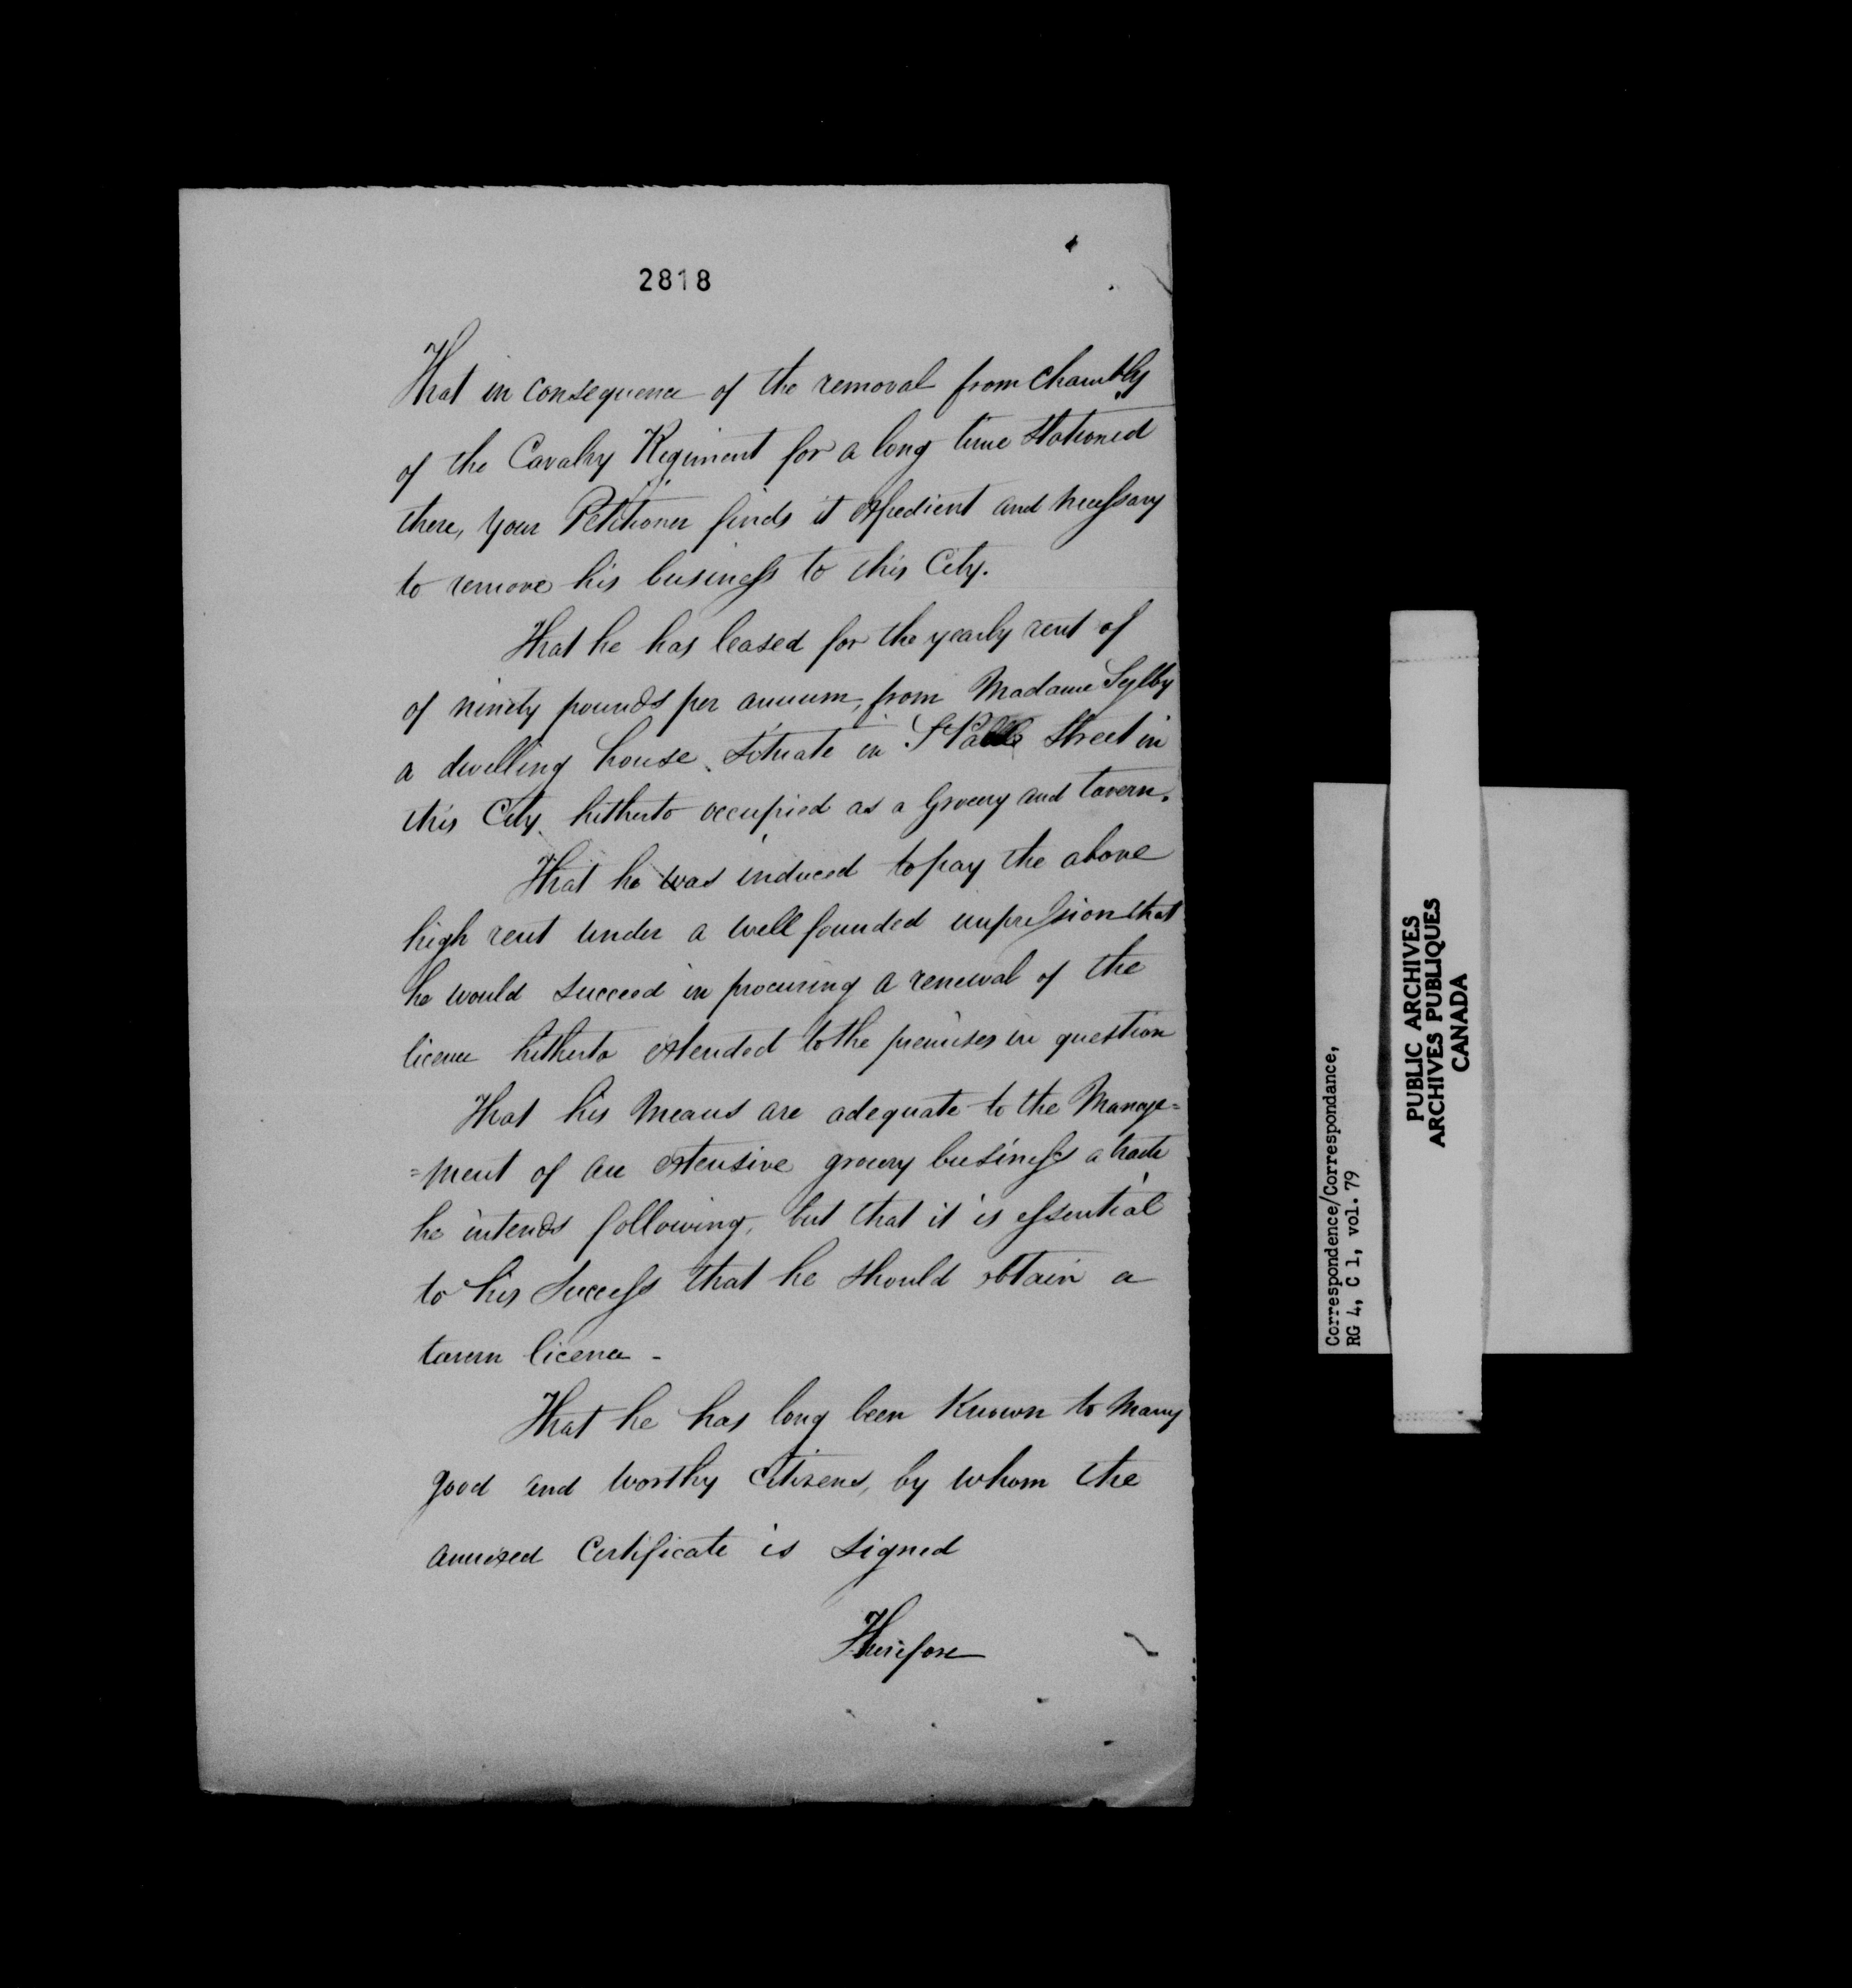 2818
That in consequence of the removal from Chambly
of the Cavalry Regiment for a long time stationed
there, your Petitioner finds it expedient and necessary
to remove his business to this City.
That he has leased for the yearly rent of
of ninety pounds per annum, from Madame Sylby
a dwelling house situate in St Street in
this City hitherto occupied as a Grocery and tavern.
That he was induced to pay the above
high rent under a well founded impression that
he would succeed in procuring a renewal of the
licence hitherto extended to the premises in question
That his means are adequate to the Manage=
=ment of an extensive grocery business a trade
he intends following, but that it is essential
to his success that he should obtain a
tavern licence -
That he has long been Known to Many
good and worthy citizens, by whom the
annexed Certificate is signed
Therefore
Correspondence/Correspondance,
RG 4, C 1, vol. 79
PUBLIC ARCHIVES
ARCHIVES PUBLIQUES
CANADA